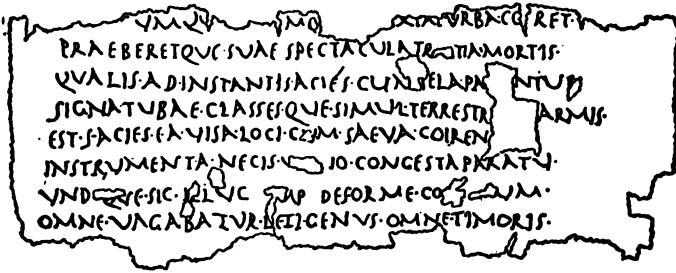 VMQV MO TVRBA·CO RET·
PRAEBERETQVE·SVAE SPECTACVLA TR TIA·MORTIS·
QVALIS·AD·INSTANTIS·ACIES·CVM TELA PA NTVR
SIGNA TVBAE·CLASSES·QVE·SIMVL·TERRESTR ARMIS·
EST·FACIES·EA·VISA·LOCI·CVM·SAEVA·COIREN
INSTRVMENTA·NECIS·V IO·CONGESTA PARATV·
VND QVE·SIC· ILLVC MP DEFORME·CO VM·
OMNE·VAGABATVR·LETI·GENVS·OMNE TIMORIS·